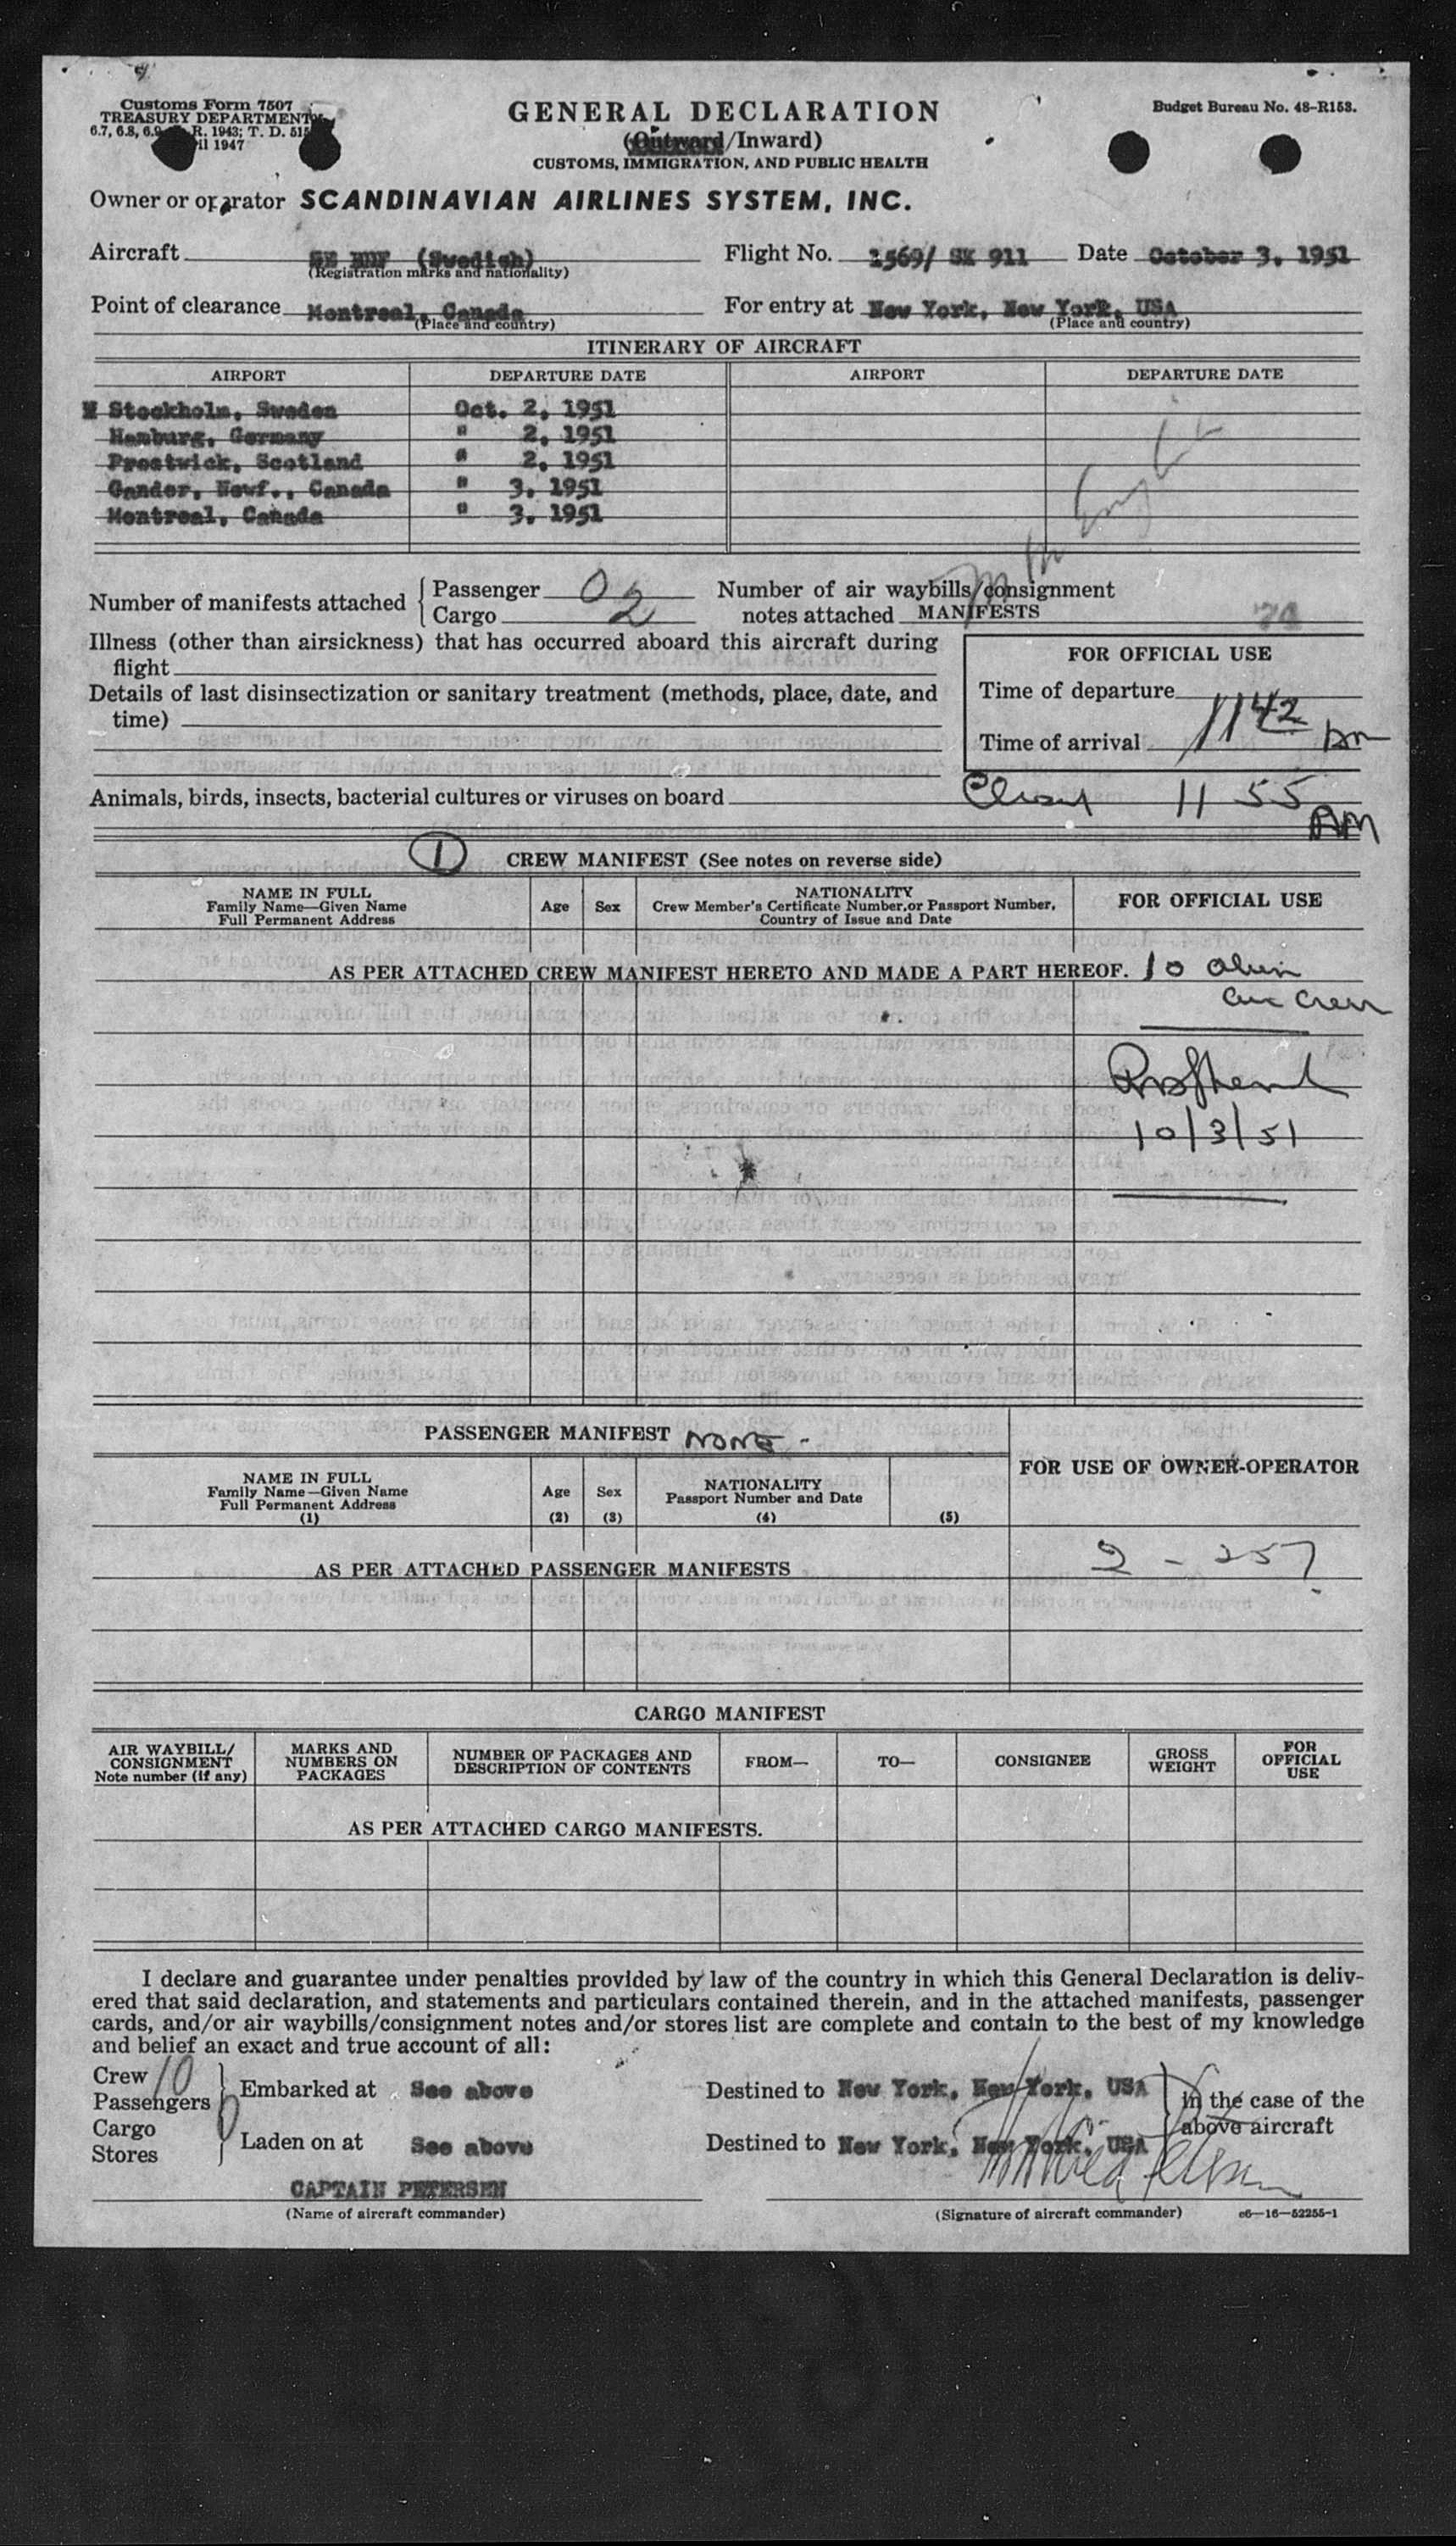 Customs Form 7507
TREASURY DEPARTMENT
6.7, 6.8, 6.9 R. 1943; T. D.
1947
GENERAL DECLARATION
(Outward/Inward)
CUSTOMS, IMMIGRATION, AND PUBLIC HEALTH
Budget Bureau No. 48-R153.
Owner or operator SCANDINAVIAN AIRLINES SYSTEM, INC.
Aircraft SE BDF (Swedish) Flight No. 1569/ SK 911 Date October 3, 1951
(Registration marks and nationality)
Point of clearance Montreal, Canada For entry at New York, New York, USA
(Place and country) (Place and country)
ITINERARY OF AIRCRAFT
AIRPORT DEPARTURE DATE AIRPORT DEPARTURE DATE
Stockholm, Sweden Oct. 2, 1951
Hamburg, Germany " 2, 1951
Prestwick, Scotland " 2, 1951
Gander, Newf., Canada " 3, 1951
Montreal, Canada " 3, 1951
Number of manifests attached { Passenger 0 Number of air waybills/consignment
Cargo 2 notes attached MANIFESTS 74
Illness (other than airsickness) that has occurred aboard this aircraft during
flight
Details of last disinsectization or sanitary treatment (methods, place, date, and
time)
FOR OFFICIAL USE
Time of departure
Time of arrival 1142 AM
Animals, birds, insects, bacterial cultures or viruses on board
11 55 AM
1 CREW MANIFEST (See notes on reverse side)
NAME IN FULL
Family Name—Given Name
Full Permanent Address
Age Sex
NATIONALITY
Crew Member's Certificate Number, or Passport Number,
Country of Issue and Date
FOR OFFICIAL USE
AS PER ATTACHED CREW MANIFEST HERETO AND MADE A PART HEREOF. 10 alien
air crew
10/3/51
PASSENGER MANIFEST NONE -
FOR USE OF OWNER-OPERATOR
NAME IN FULL
Family Name—Given Name
Full Permanent Address
(1)
Age
(2)
Sex
(3)
NATIONALITY
Passport Number and Date
(4)
(5)
2 - 257
AS PER ATTACHED PASSENGER MANIFESTS
CARGO MANIFEST
AIR WAYBILL/
CONSIGNMENT
Note number (if any)
MARKS AND
NUMBERS ON
PACKAGES
NUMBER OF PACKAGES AND
DESCRIPTION OF CONTENTS
FROM—
TO—
CONSIGNEE
GROSS
WEIGHT
FOR
OFFICIAL
USE
AS PER ATTACHED CARGO MANIFESTS.
I declare and guarantee under penalties provided by law of the country in which this General Declaration is deliv-
ered that said declaration, and statements and particulars contained therein, and in the attached manifests, passenger
cards, and/or air waybills/consignment notes and/or stores list are complete and contain to the best of my knowledge
and belief an exact and true account of all:
Crew 10
Passengers 0
Embarked at See above Destined to New York, New York, USA
Cargo
Stores
Laden on at See above Destined to New York, New York, USA
in the case of the
above aircraft
CAPTAIN PETERSEN
(Name of aircraft commander) (Signature of aircraft commander) c6—16—52255-1